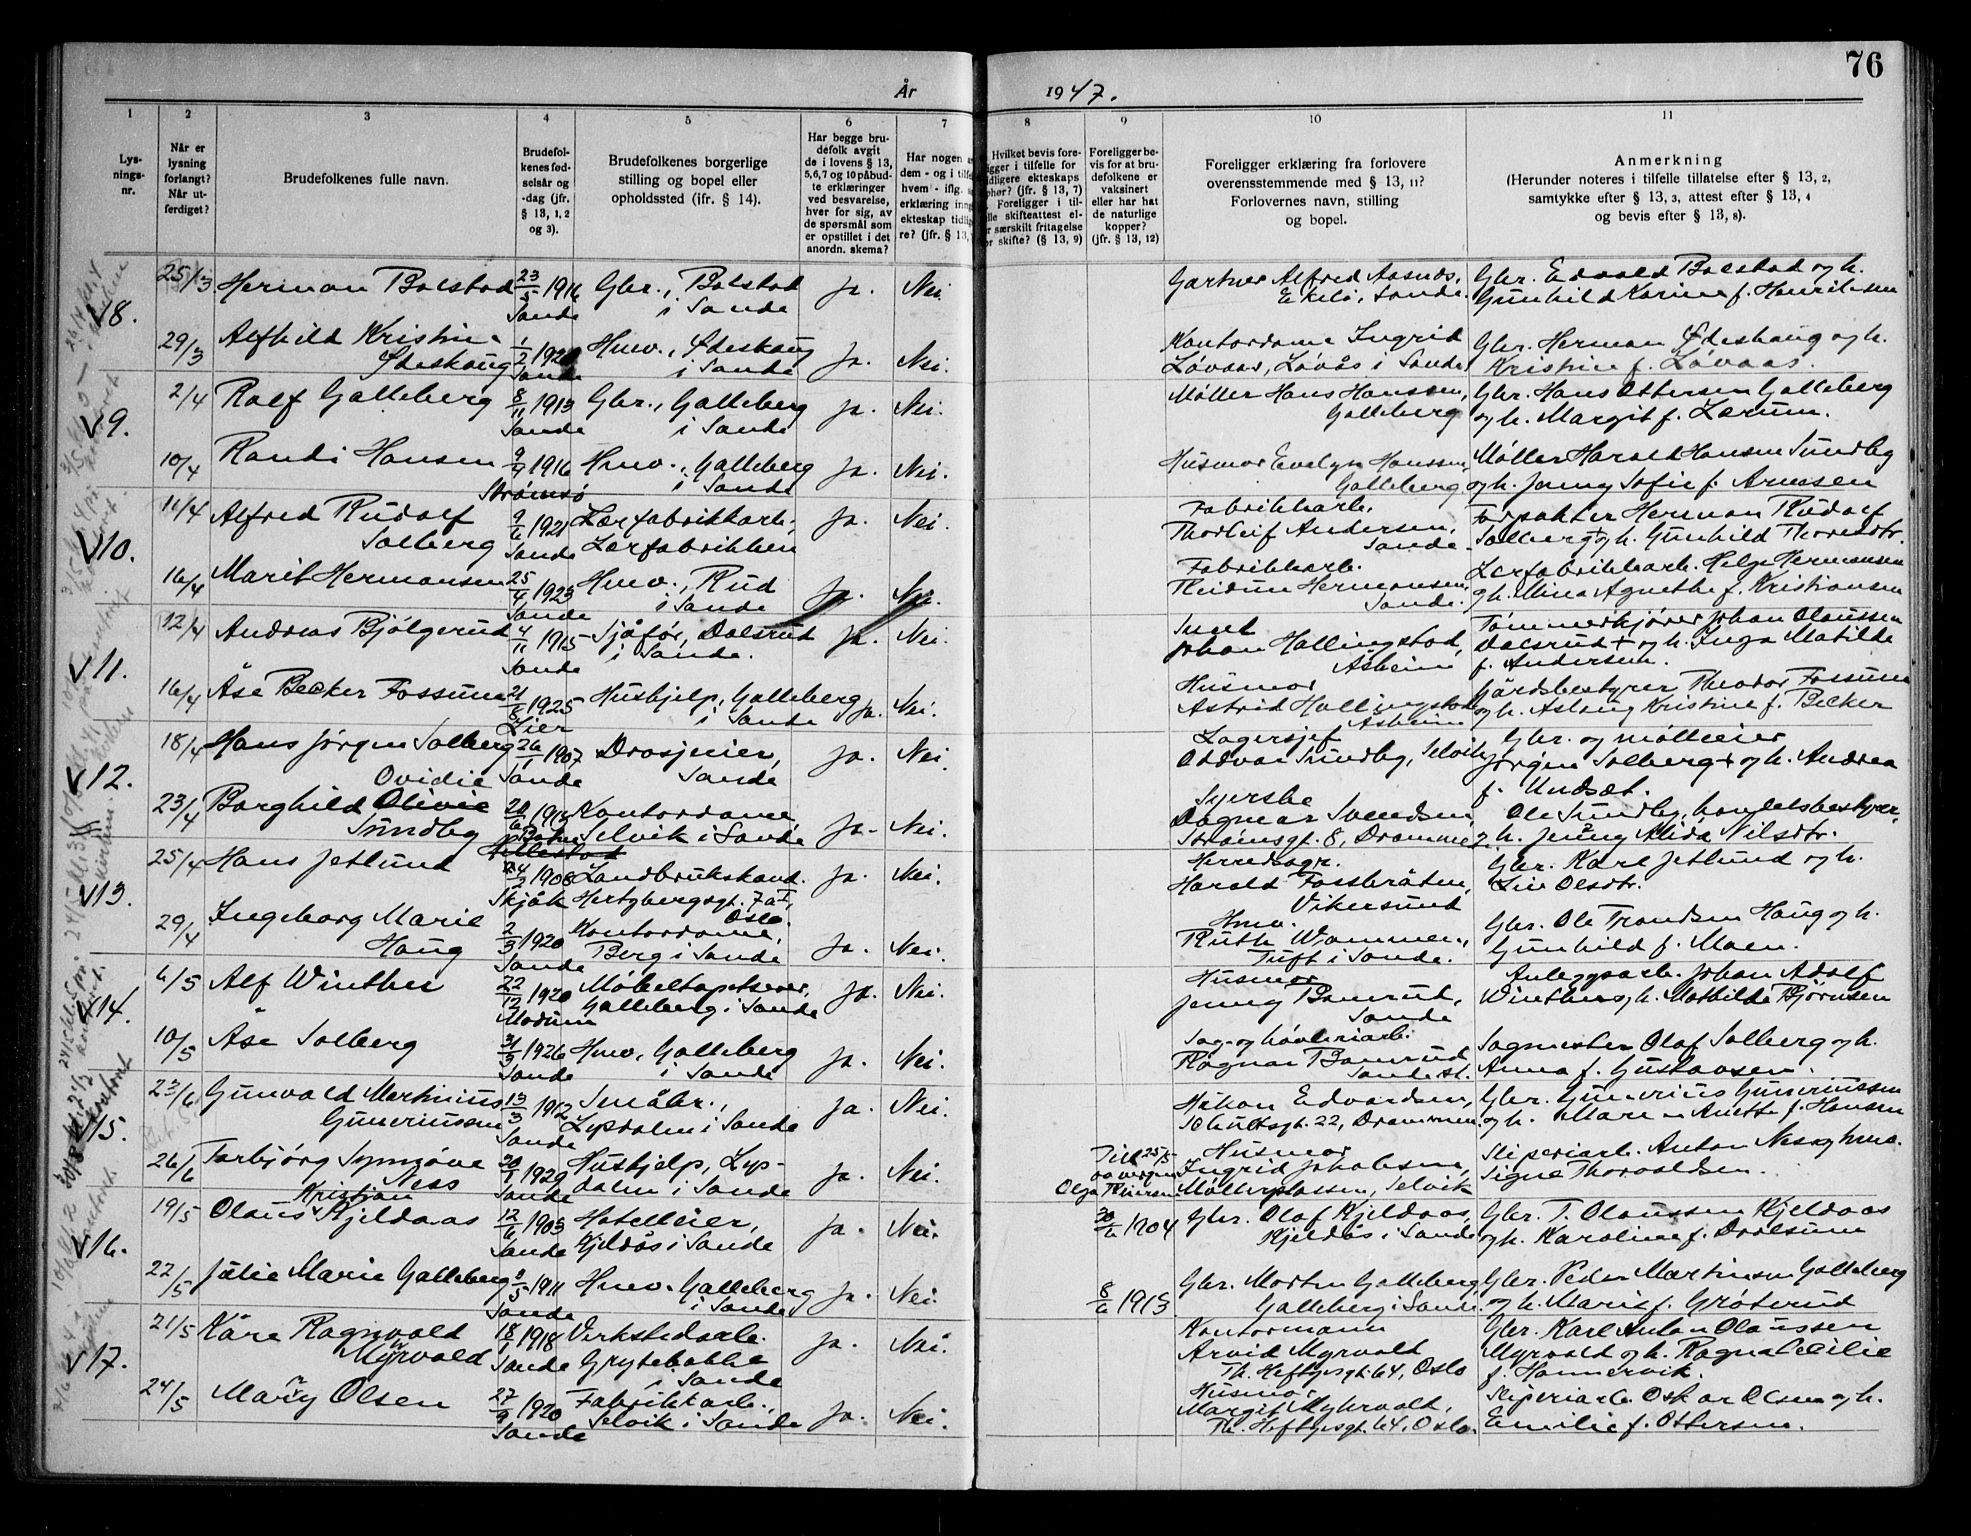 76
År 1947.
1 2 3 4 5 6 7 8 9 10 11
Lys-
nings-
nr.
Når er
lysning
forlangt?
Når ut-
ferdiget?
Brudefolkenes fulle navn.
Brudefol-
kenes fød-
selsår og
-dag (jfr.
§ 13, 1, 2
og 3).
Brudefolkenes borgerlige
stilling og bopel eller
opholdssted (ifr. § 14).
Har begge bru-
defolk avgit
de i lovens § 13,
5, 6, 7 og 10 påbud-
te erklæringer
ved besvarelse,
hver for sig, av
de spørsmål som
er opstillet i det
anordn. skema?
Har nogen
dem - og i tilf
hvem - iflg.
erklæring inng
ekteskap tidli
re? (jfr. § 13,
Hvilket bevis fore-
ligger i tilfelle for
tidligere ekteskaps
ophør? (jfr. § 13, 7)
Foreligger i til-
felle skifteattest el-
er særskilt fritagelse
for skifte? (§ 13, 9)
Foreligger be-
vis for at bru-
defolkene er
vaksinert
eller har hat
de naturlige
kopper?
(jfr. § 13, 12)
Foreligger erklæring fra forlovere
overensstemmende med § 13, 11?
Forlovernes navn, stilling
og bopel.
Anmerkning
(Herunder noteres i tilfelle tillatelse efter § 13, 2,
samtykke efter § 13, 3, attest efter § 13, 4
og bevis efter § 13, 8).
8. 25/3 Herman Bolstad 23/5 1916 Sande Gbr., Bolstad i Sande Ja. Nei. Gartner Alfred Aasnes, Ekeli, Sande. Gbr. Edvald Bolstad og h. Gunhild Karine f. Henriksen
29/3 Alfhild Kristine Ødeskaug 1/2 192 Sande Hmv., Ødeskaug i Sande Ja. Nei. Kontordame Ingrid Løvaas, Løvås i Sande Gbr. Herman Ødeskaug og h. Kristine f. Løvaas.
9. 2/4 Rolf Galleberg 8/11 1913 Sande Gbr., Galleberg i Sande Ja. Nei. Møller Hans Hanssen, Galleberg Gbr. Hans Ottersen Galleberg og h. Margit f. Lerum.
10/4 Randi Hansen 9/9 1916 Strømsø Hmv., Galleberg i Sande Ja. Nei. Husmor Evelyn Hanssen, Galleberg. Møller Harald Hansen Sundby og h. Jenny Sofie f. Arnesen
10. 11/4 Alfred Rudolf Solberg 9/6 1921 Sande Lærfabrikkarb. Lærfabrikken Ja. Nei. Fabrikkarb. Thorleif Andersen, Sande. Forpakter Herman Rudolf Solberg + og h. Gunhild Thorsdtr.
16/4 Marit Hermansen 25/4 1923 Sande Hmv., Rud i Sande Ja. Nei. Fabrikkarb. Reidun Hermansen, Sande. Lærfabrikkarb. Helge Hermansen og h. Mina Agnethe f. Kristiansen
11. 12/4 Andreas Bjølgerud 4/11 1915 Sande Sjåfør, Dalsrud i Sande. Ja. Nei. Johan Hallingstad, Åsheim Tømmerkjører Johan Olaussen Dalsrud + og h. Inga Matilde f. Andersen.
16/4 Åse Becker Fossum 21/8 1925 Lier Hushjelp, Galleberg i Sande Ja. Nei. Husmor Astrid Hallingstad Åsheim Gårdsbestyrer Theodor Fossum og h. Aslaug Kristine f. Becker
12. 18/4 Hans Jørgen Solberg 26/1 1907 Sande Drosjeeier, Sande Ja. Nei. Lagersjef Oddvar Sundby, Selvik Gbr. og mølleeier Jørgen Solberg + og h. Andrea f. Undset.
23/4 Borghild Ovidie Olivie Sundby 20/6 Kontordame, Selvik i Sande Ja. Nei. Syerske Dagmar Svendsen, Strømsgt. 8, Drammen Ole Sundby, handelsbestyrer, og h. Jenny Alida Nilsdtr.
13. 25/4 Hans Jetlund 1908 Skjåk Landbrukskand. Hertzbergsgt. 7a I, Oslo. Ja. Nei. Herredsagr. Harald Fossbråten, Vikersund Gbr. Karl Jetlund og h. Liv Olsdtr.
29/4 Ingeborg Marie Haug 2/3 1920 Sande Kontordame, Berg i Sande Ja. Nei. Hmv. Ruth Wammer, Tuft i Sande. Gbr. Ole Trondsen Haug og h. Gunhild f. Moen.
14. 6/5 Alf Winther 22/12 1920 Modum Møbeltapetserer, Galleberg i Sande Ja. Nei. Husmor Jenny Bamrud, Sande Anleggsarb. Johan Adolf Winther og h. Mathilde Bjørnsen
10/5 Åse Solberg 31/3 1926 Sande Hmv., Galleberg i Sande Ja. Nei. Sag- og høvleriarb. Ragnar Bamrud Sande st. Sagmester Olaf Solberg og h. Anna f. Gustavsen.
15. 23/6 Gunvald Martinius Guneriussen 13/3 1912 Sande Småbr., Lysdalen i Sande Ja. Nei. Håkon Edvardsen, Schultzgt. 22, Drammen. Gbr. Gunerius Gunerussen og h. Maren Anette f. Hansen
26/6 Torbjørg Synnøve Ness 1929 Sande Hushjelp, Lysdalen i Sande Ja. Nei. Till. 25/5 Husmor Ingrid Jakobsen, Møllerplassen, Selvik Sliperiarb. Anton Ness og hmv. Signe Thorvaldsen.
16. 19/5 Olaus Kristjan Kjeldaas 12/6 1903 Sande Hotelleier, Kjeldås i Sande Ja. Nei. 20/6 1904 Gbr. Olaf Kjeldaas, Kjeldås i Sande Gbr. T. Olaussen Kjeldaas og h. Karoline f. Dralsum
22/5 Julie Marie Galleberg 9/5 1911 Sande Hmv. Galleberg i Sande Ja. Nei. 8/6 1913 Gbr. Morten Galleberg, Galleberg i Sande. Gbr. Peder Martinsen Galleberg og h. Marie f. Grøterud
17. 21/5 Kåre Ragnvald Myrvold 18/1 1918 Sande Verkstedarb. Grytebakke i Sande Ja. Nei. Kontormann Arvid Myrvold Th. Heftyesgt. 64, Oslo Gbr. Karl Anton Olaussen Myrvold og h. Ragna Cecilie f. Hannervik.
24/5 Mary Olsen 27/9 1920 Sande Fabrikkarb., Selvik i Sande Ja. Nei. Husmor Margit Myhrvold, Th. Heftyesgt. 64, Oslo. Sliperiarb. Oskar Olsen og h. Emilie f. Ottersen.